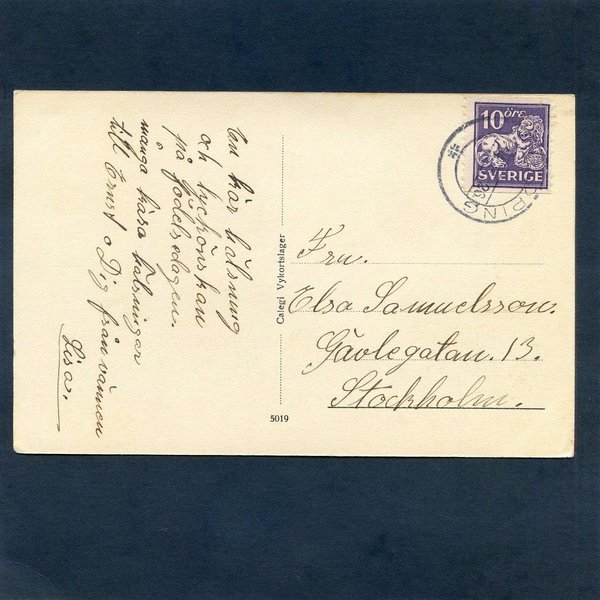 En kär hälsning
och lyckönskan
på födelsedagen.
många kära hälsningar
till Ernst o Dig från vännen
Lisa.
Calegi Vykortslager
5019
10 ÖRE
SVERIGE
PING
Fru.
Elsa Samuelsson.
Gävlegatan. 13.
Stockholm.